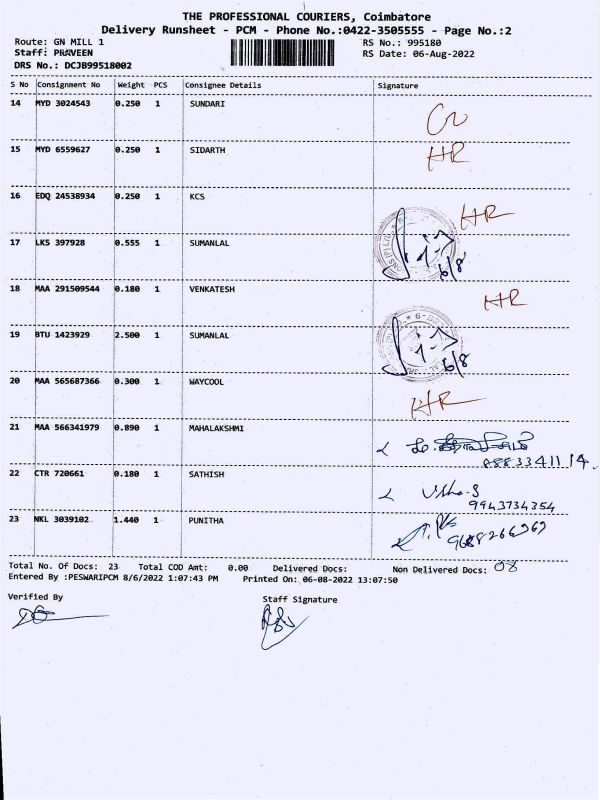 THE PROFESSIONAL COURIERS, Coimbatore
Delivery Runsheet - PCM - Phone No.:0422-3505555 - Page No.:2
Route: GN MILL 1 RS No.: 995180
Staff: PRAVEEN RS Date: 06-Aug-2022
DRS No.: DCJB99518002
S No Consignment No Weight PCS Consignee Details Signature
14 MYD 3024543 0.250 1 SUNDARI
15 MYD 6559627 0.250 1 SIDARTH HR
16 EDQ 24538934 0.250 1 KCS HR
17 LKS 397928 0.555 1 SUMANLAL 6/8
18 MAA 291509544 0.180 1 VENKATESH HR
19 BTU 1423929 2.500 1 SUMANLAL 6/8
20 MAA 565687366 0.300 1 WAYCOOL HR
21 MAA 566341979 0.890 1 MAHALAKSHMI
22 CTR 720661 0.180 1 SATHISH Usha.S
9943734354
23 NKL 3039102 1.440 1 PUNITHA
Total No. Of Docs: 23 Total COD Amt: 0.00 Delivered Docs: Non Delivered Docs: 08
Entered By :PESWARIPCM 8/6/2022 1:07:43 PM Printed On: 06-08-2022 13:07:50
Verified By Staff Signature